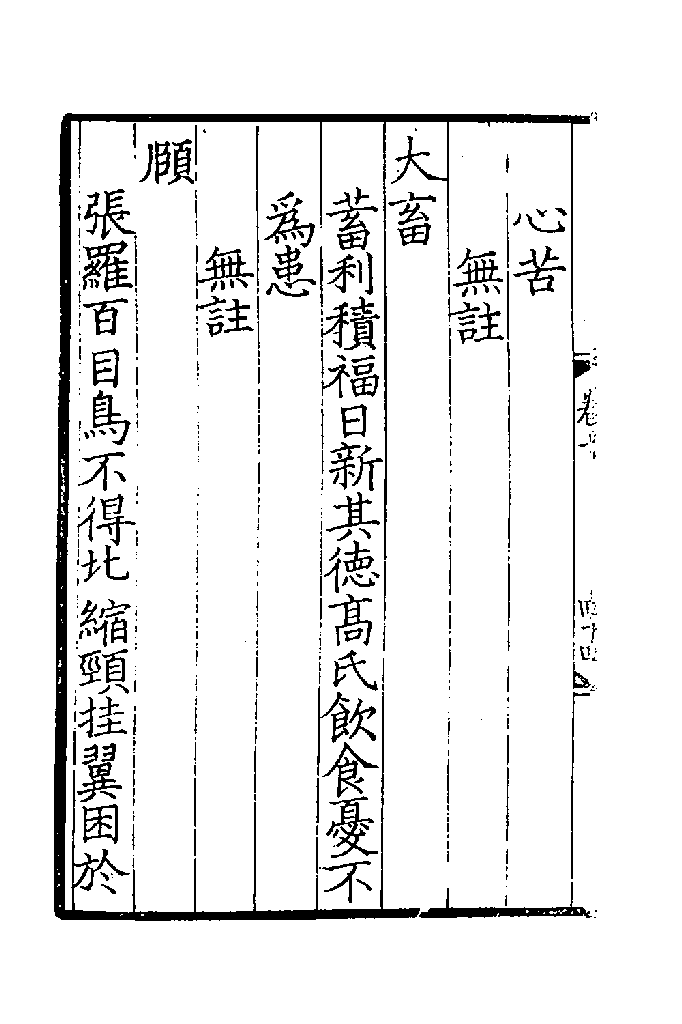 心苦
無註
大畜
蓄利積福日新其徳髙氏飲食憂不
爲患
無註
頤
張羅百目鳥不得北縮頸挂翼困於